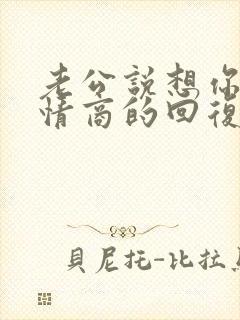 老公說想你
情商的回復
貝尼托-比拉